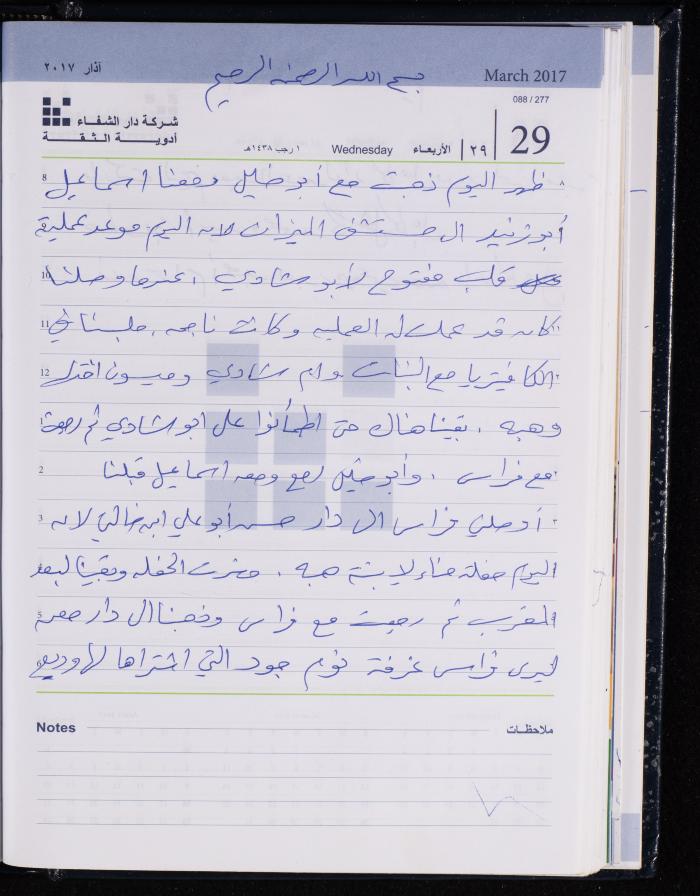 آذار ٢٠١٧
بسم الله الرحمن الرحيم
March 2017
088 / 277
شركة دار الشفاء
أدويـة الثقـة
١ رجب ١٤٣٨هـ
Wednesday
الأربعاء
٢٩
29
ظهر اليوم ذهبت مع أبو خليل ومعنا اسماعيل 8
أبو زنيد الى مستشفى الميزان لانه اليوم موعد عملية
قلب مفتوح لأبو شادي . عندما وصلنا 10
كان قد عملت له العمليه وكانت ناجحه . جلسنا في 11
الكافيتريا مع البنات وام شادي وميسون اختك 12
وهبه . بقينا هناك حتى اطمأنوا على ابو شادي ثم رجعت 1
مع فراس . وأبو خليل رجع ومعه اسماعيل قبلنا 2
أوصلني فراس الى دار حسن أبو علي ابن خالي لانه 3
اليوم حفلة حناء لابنته هبه . حضرت الحفله وبقينا لبعد 4
المغرب ثم رجعت مع فراس وذهبنا الى دار 5
ليرى فراس غرفة نوم جود التي اشتراها لها وديع
Notes
ملاحظـات